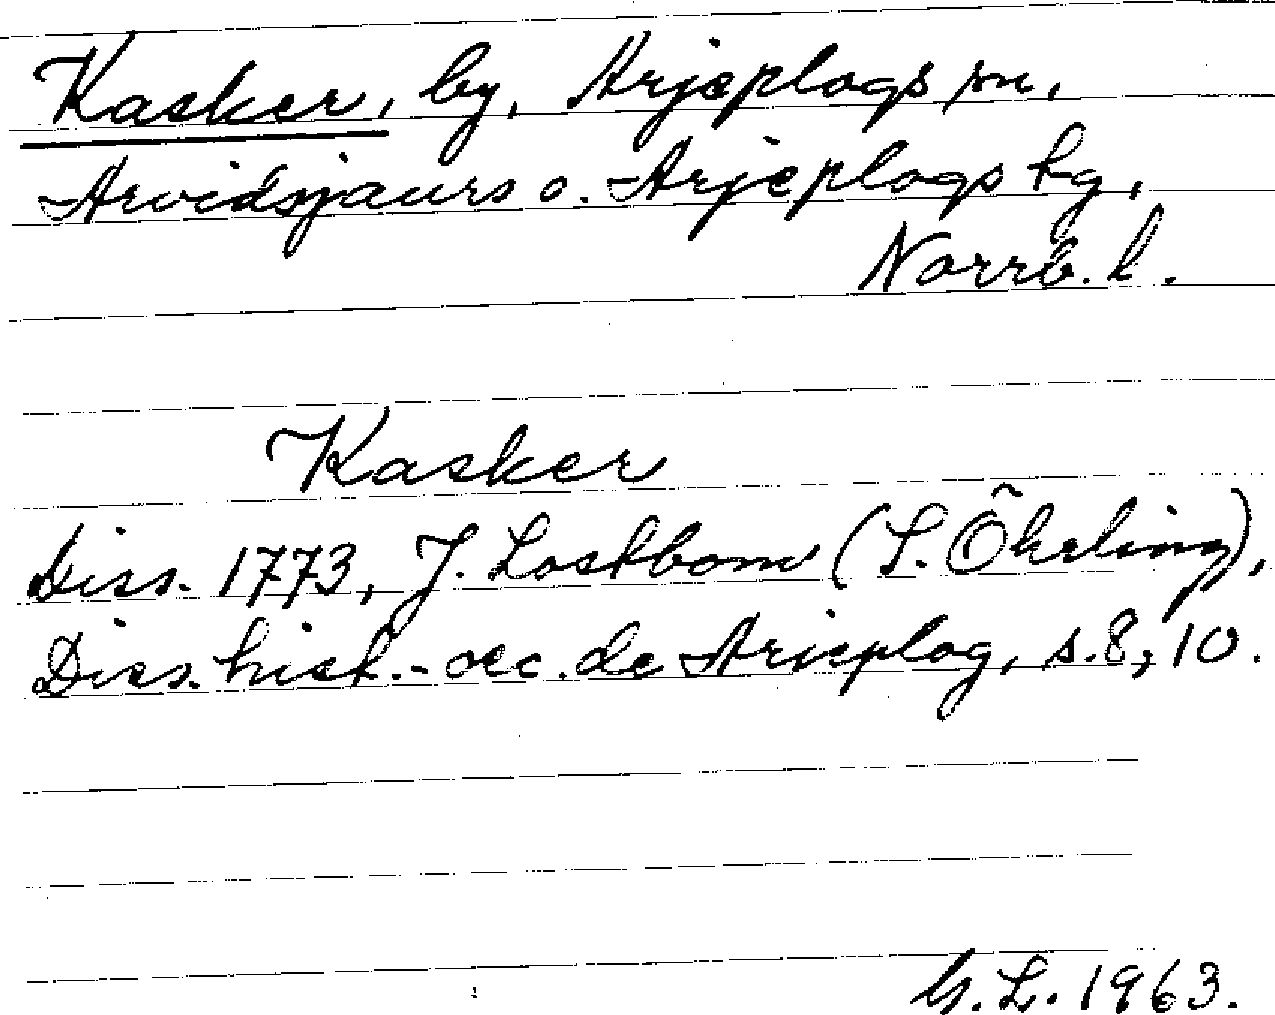 Kasker, by, Arjeplogs sn,
Arvidsjaurs o. Arjeplogs tg,
Norrb. l.
Kasker
Diss. 1773, J. Lostbom (S. Öhrling),
Diss. hist.-oec. de Arieplog, s. 8, 10.
G. L. 1963.